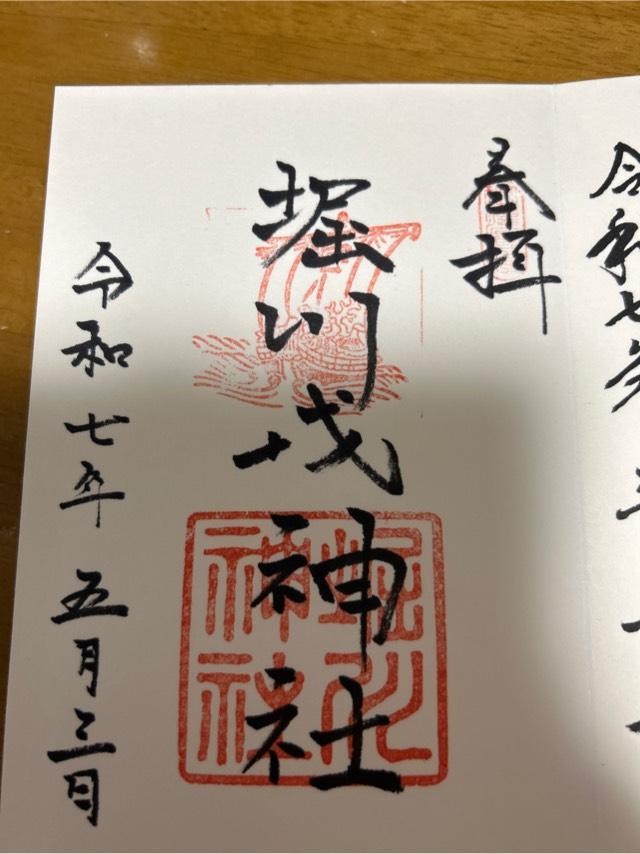 令和七年
奉拝
堀川戎神社
堀川
神社
令和七年五月三日